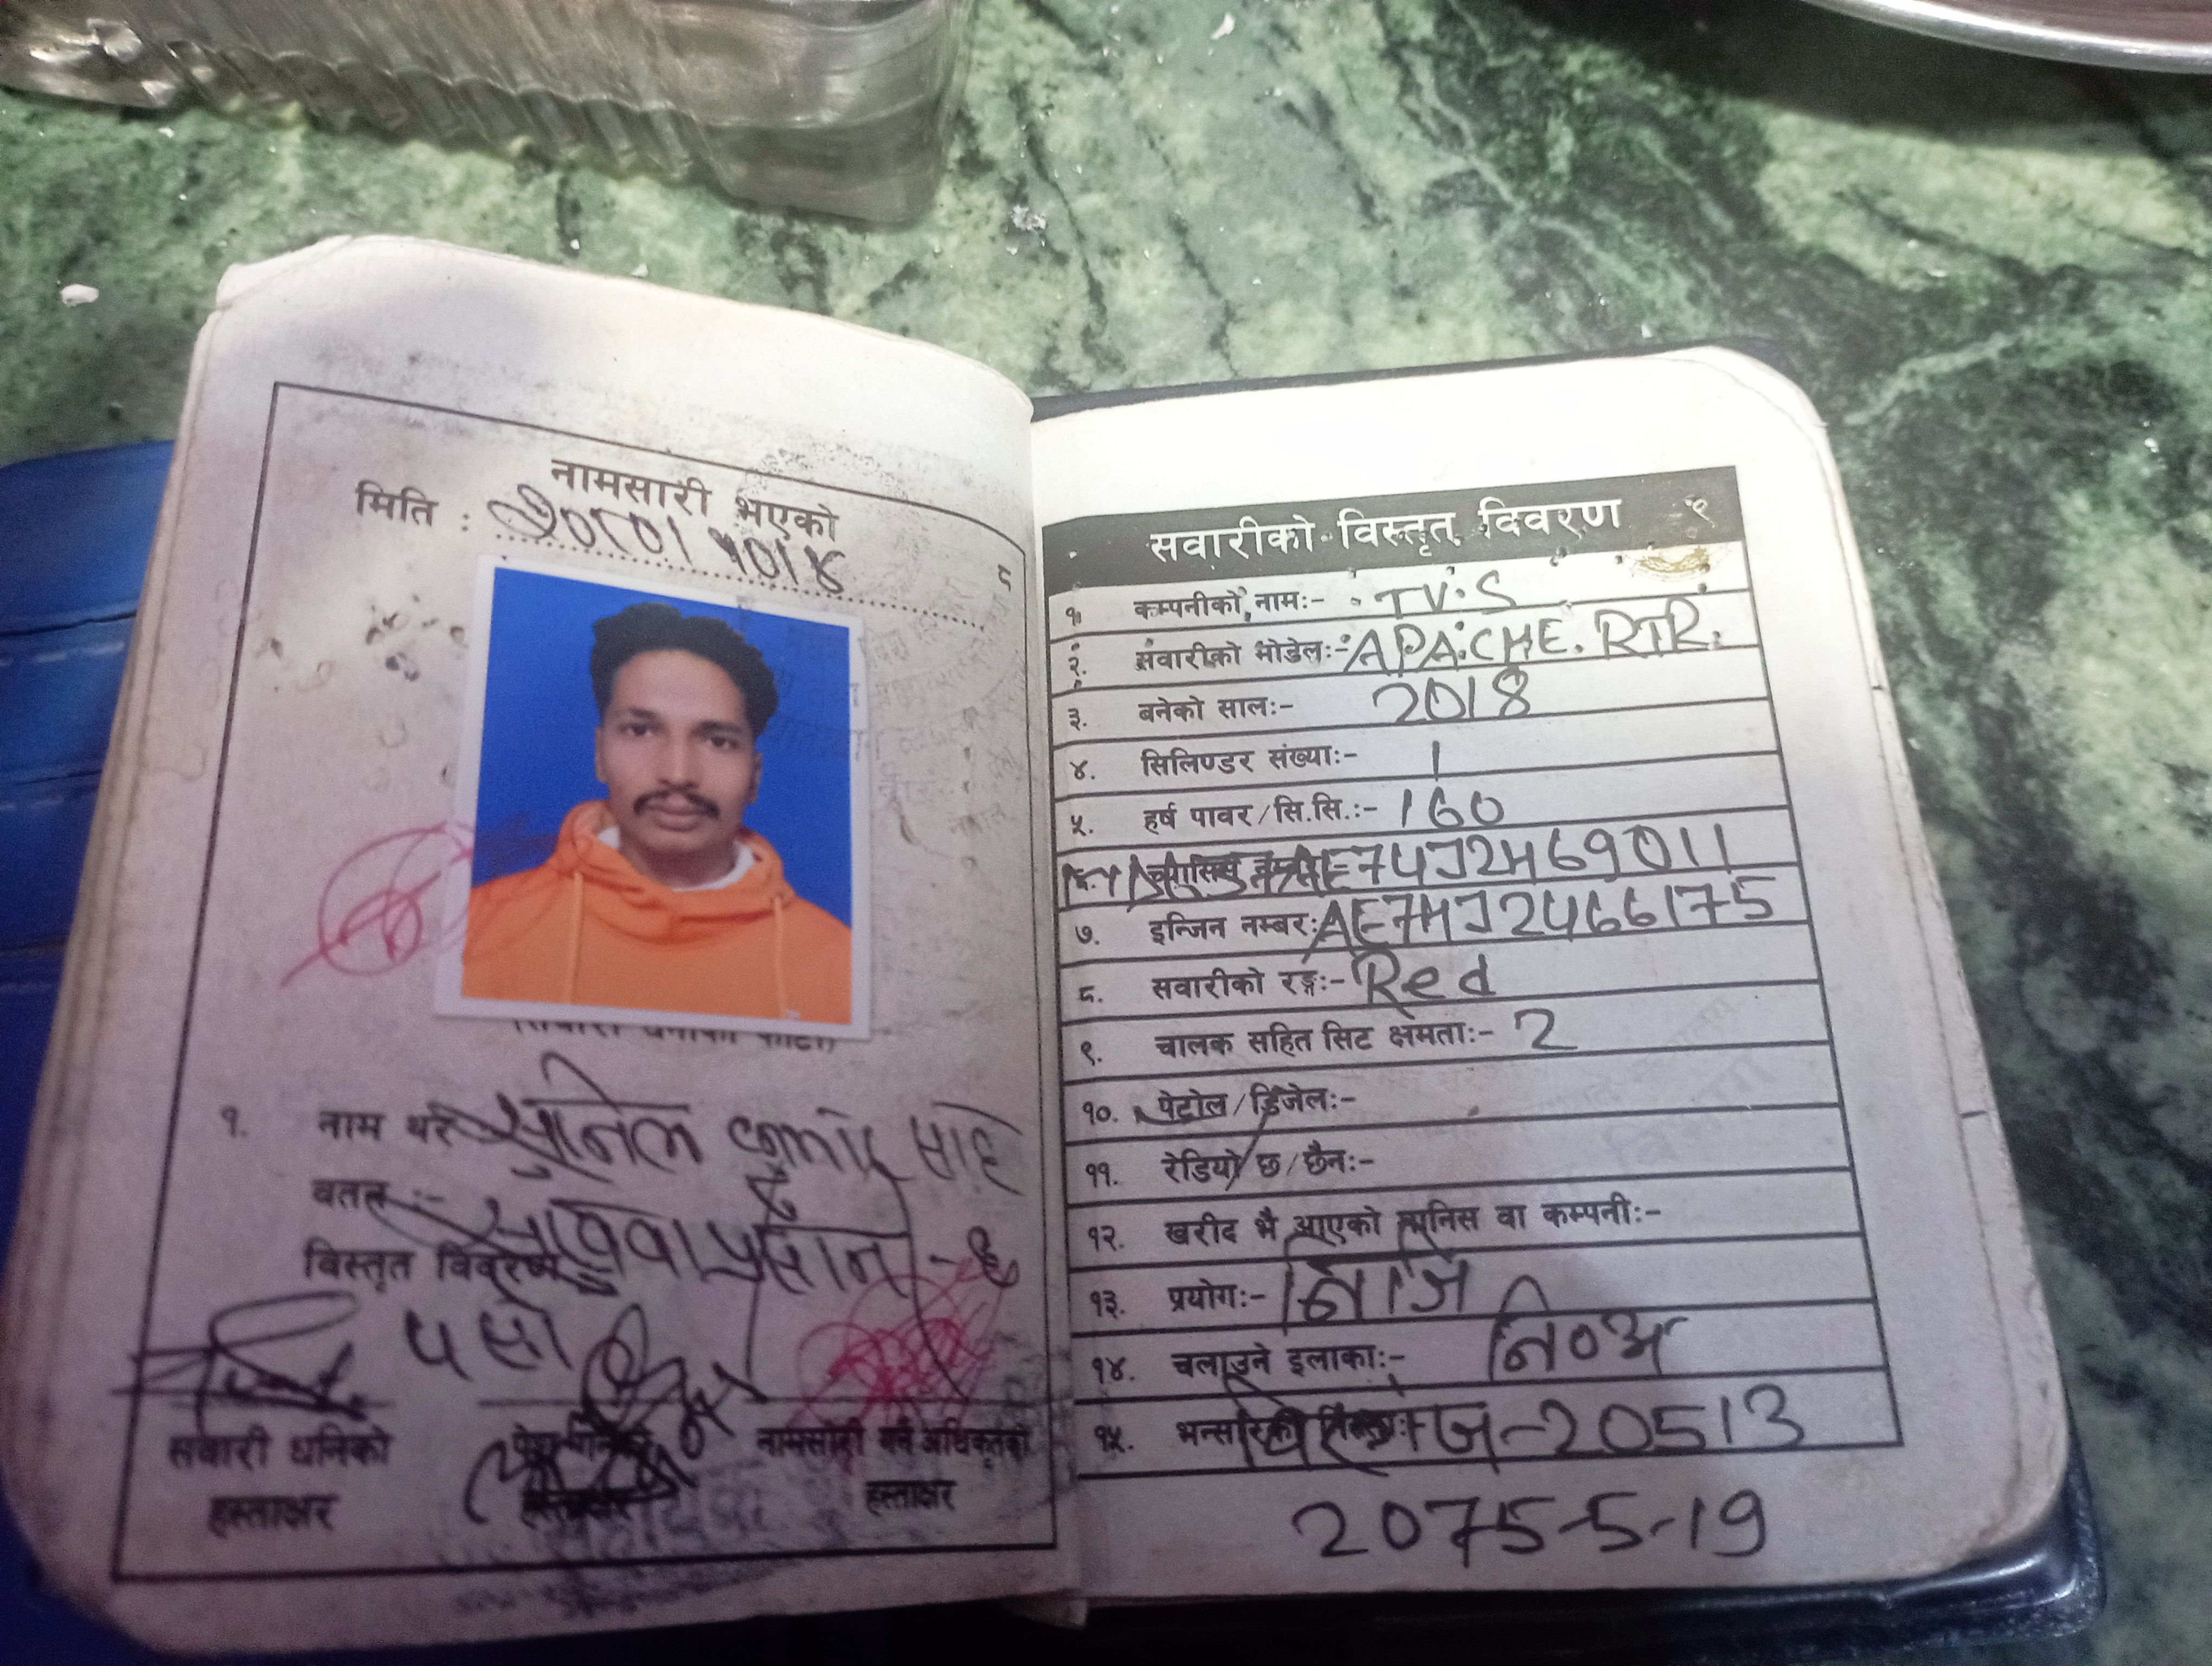 ८
नामसारी भएको
मिति : २०८०।१०।४
१. नाम थर सुनिल कुमार साह
वतन :-
विस्तृत विवरण
पर्सा
सवारी धनिको हस्ताक्षर
हस्ताक्षर
नामसारी गर्ने अधिकृतको हस्ताक्षर
९
सवारीको विस्तृत विवरण
१. कम्पनीको नाम:- TVS
२. सवारीको मोडेल:- APACHE. RTR.
३. बनेको साल:- 2018
४. सिलिण्डर संख्या:- 1
५. हर्ष पावर/सि.सि.:- 160
६.
७. इन्जिन नम्बर: AE7HJ2466175
८. सवारीको रङ्ग:- Red
९. चालक सहित सिट क्षमता:- 2
१०. पेट्रोल/डिजेल:-
११. रेडियो छ/छैन:-
१२. खरीद भै आएको मानिस वा कम्पनी:-
१३. प्रयोग:- निजि
१४. चलाउने इलाका:- ना०अ
१५. भन्सारको 20513
2075-5-19